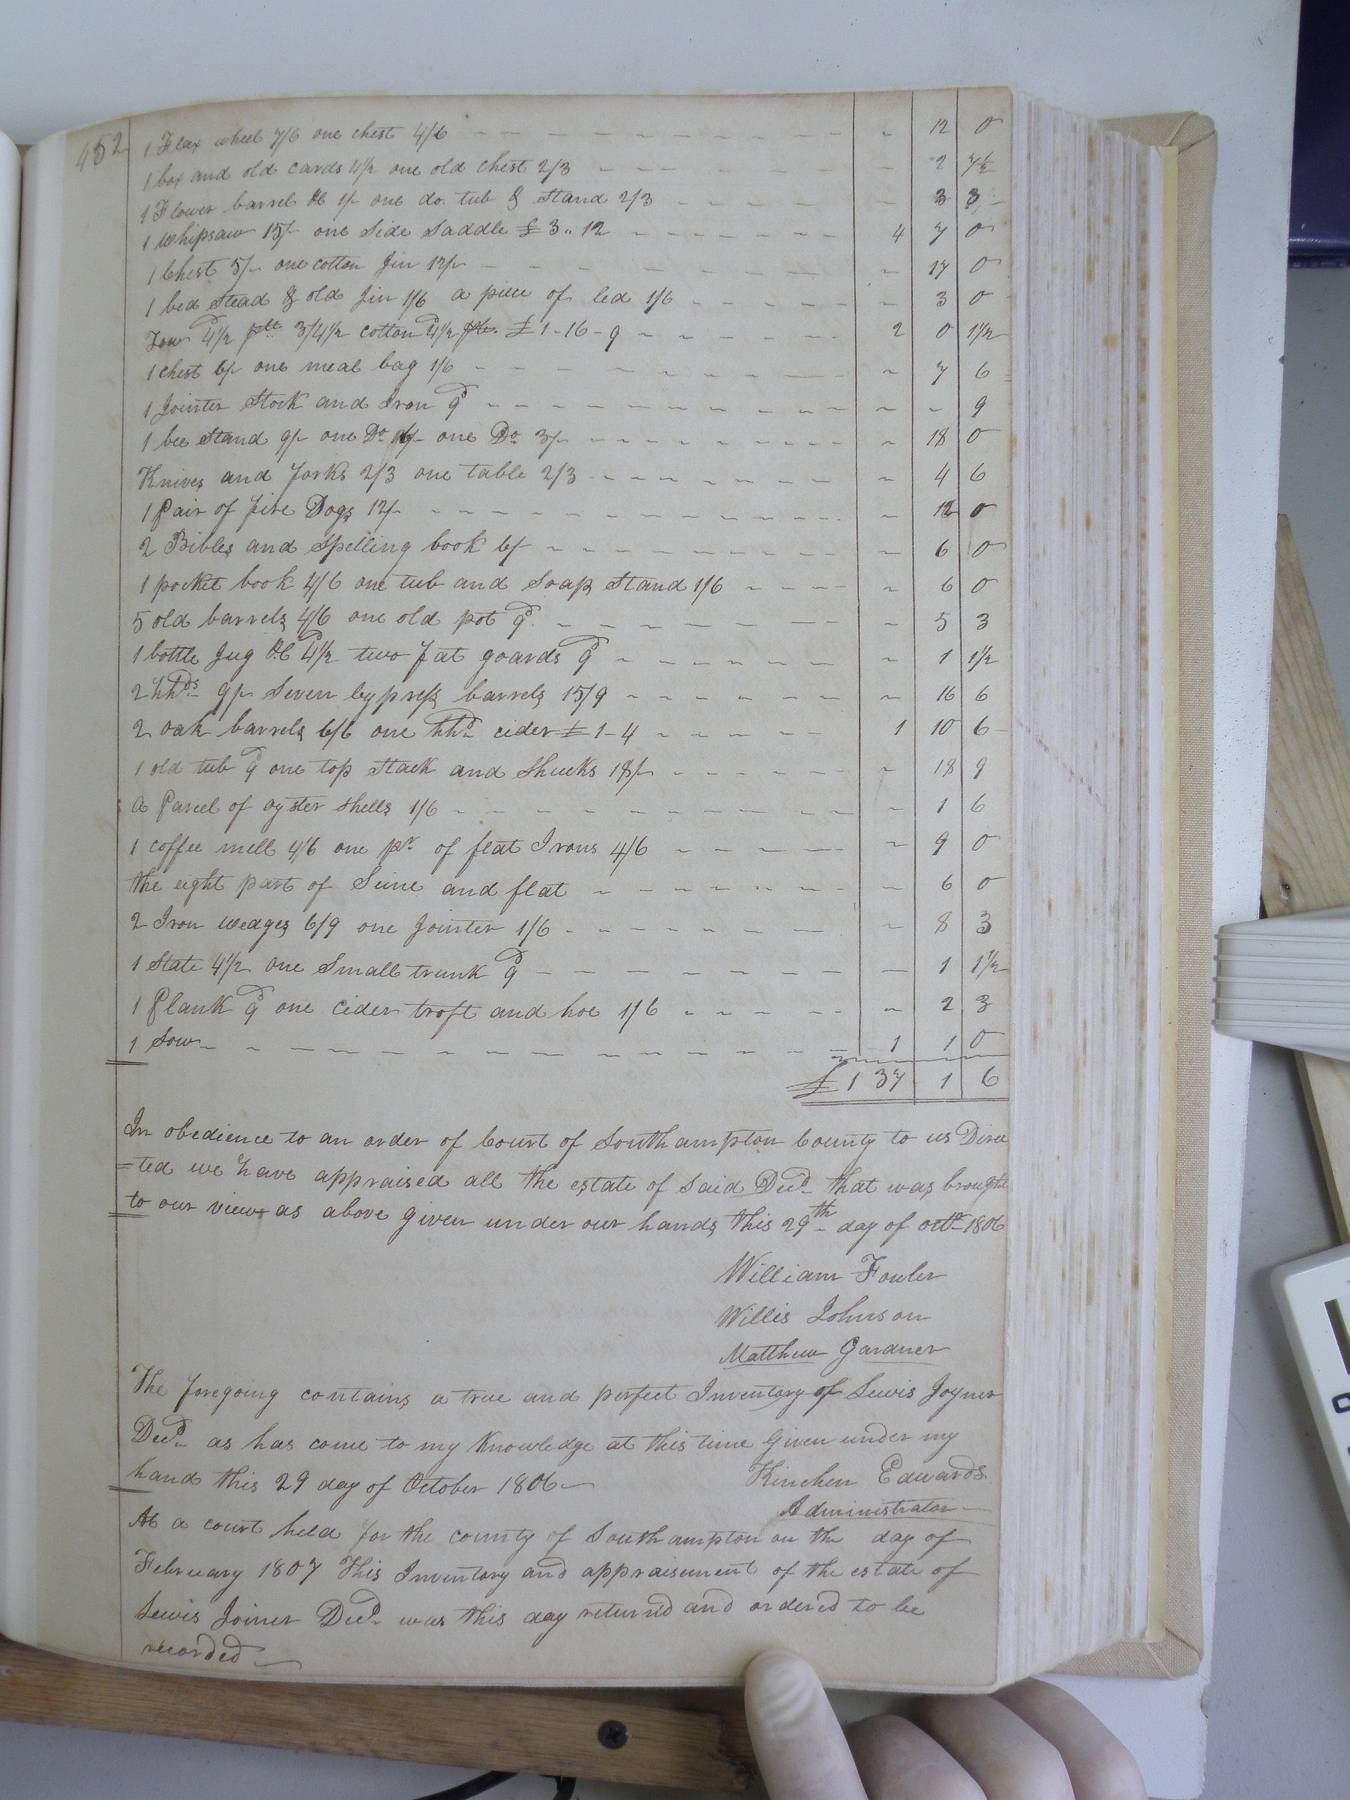 452
1 Flax wheel 7/6 one chest 4/6 - - - - - - - - - 12 0
1 box and old cards 4½ one old chest 2/3 - - - - 2 7½
1 Flower barrel &C 1/- one do. tub & Stand 2/3 - - - - 3 3
1 Whipsaw 15/- one Side Saddle £ 3 .. 12 - - - - - 4 7 0
1 Chest 5/- one cotton Jin 12/- - - - - - - 17 0
1 bed Stead & old Jin 1/6 a piece of led 1/6 - - - - 3 0
Tow 4½ 3/4½ cotton 4½ £ 1-16-9 - - - - - 2 0 1½
1 chest 6/- one meal bag 1/6 - - - - - - - 7 6
1 Jointer Stock and Iron 9d - - - - - - - - - 9
1 bee Stand 9/- one Do 6/- one Do 3/- - - - - - 18 0
Knives and forks 2/3 one table 2/3 - - - - - - 4 6
1 Pair of fire Dogs 12/- - - - - - - - - - 12 0
2 Bibles and Spelling book 6/- - - - - - - - 6 0
1 pocket book 4/6 one tub and Soap Stand 1/6 - - - - 6 0
5 old barrels 4/6 one old pot 9d. - - - - - - 5 3
1 bottle Jug &C 4½d two fat goards 9d - - - - - - 1 1½
2 hhds 9/- Seven Cypress barrels 15/9 - - - - - - 16 6
2 oak barrels 6/6 one hhd cider £ 1-4 - - - - - 1 10 6
1 old tub 9d one top Stack and Shucks 18/- - - - - - 18 9
a Parcel of oyster shells 1/6 - - - - - - - - 1 6
1 coffee mell 4/6 one pr of flat Irons 4/6 - - - - - 9 0
the eight part of Seine and flat - - - - - - 6 0
2 Iron wedges 6/9 one Jointer 1/6 - - - - - - 8 3
1 State 4½ one Small trunk 9d - - - - - - - 1 1½
1 Plank 9d one cider troft and hoe 1/6 - - - - - 2 3
1 Sow - - - - - - - - - - - - 1 1 0
£ 1 37 1 6
In obedience to an order of Court of Southampton County to us Direc
=ted we have appraised all the estate of Said Decd that was brought
to our view as above given under our hands this 29th day of octo 1806
William Fowler
Willis Johnson
Matthew Gardner
The foregoing contains a true and perfect Inventory of Lewis Joyner
Decd as has come to my Knowledge at this time Given under my
hand this 29 day of October 1806
Kinchen Edwards
Administrator
At a court held for the county of Southampton on the day of
February 1807 This Inventory and appraisement of the estate of
Lewis Joiner Decd was this day returnd and ordered to be
recorded